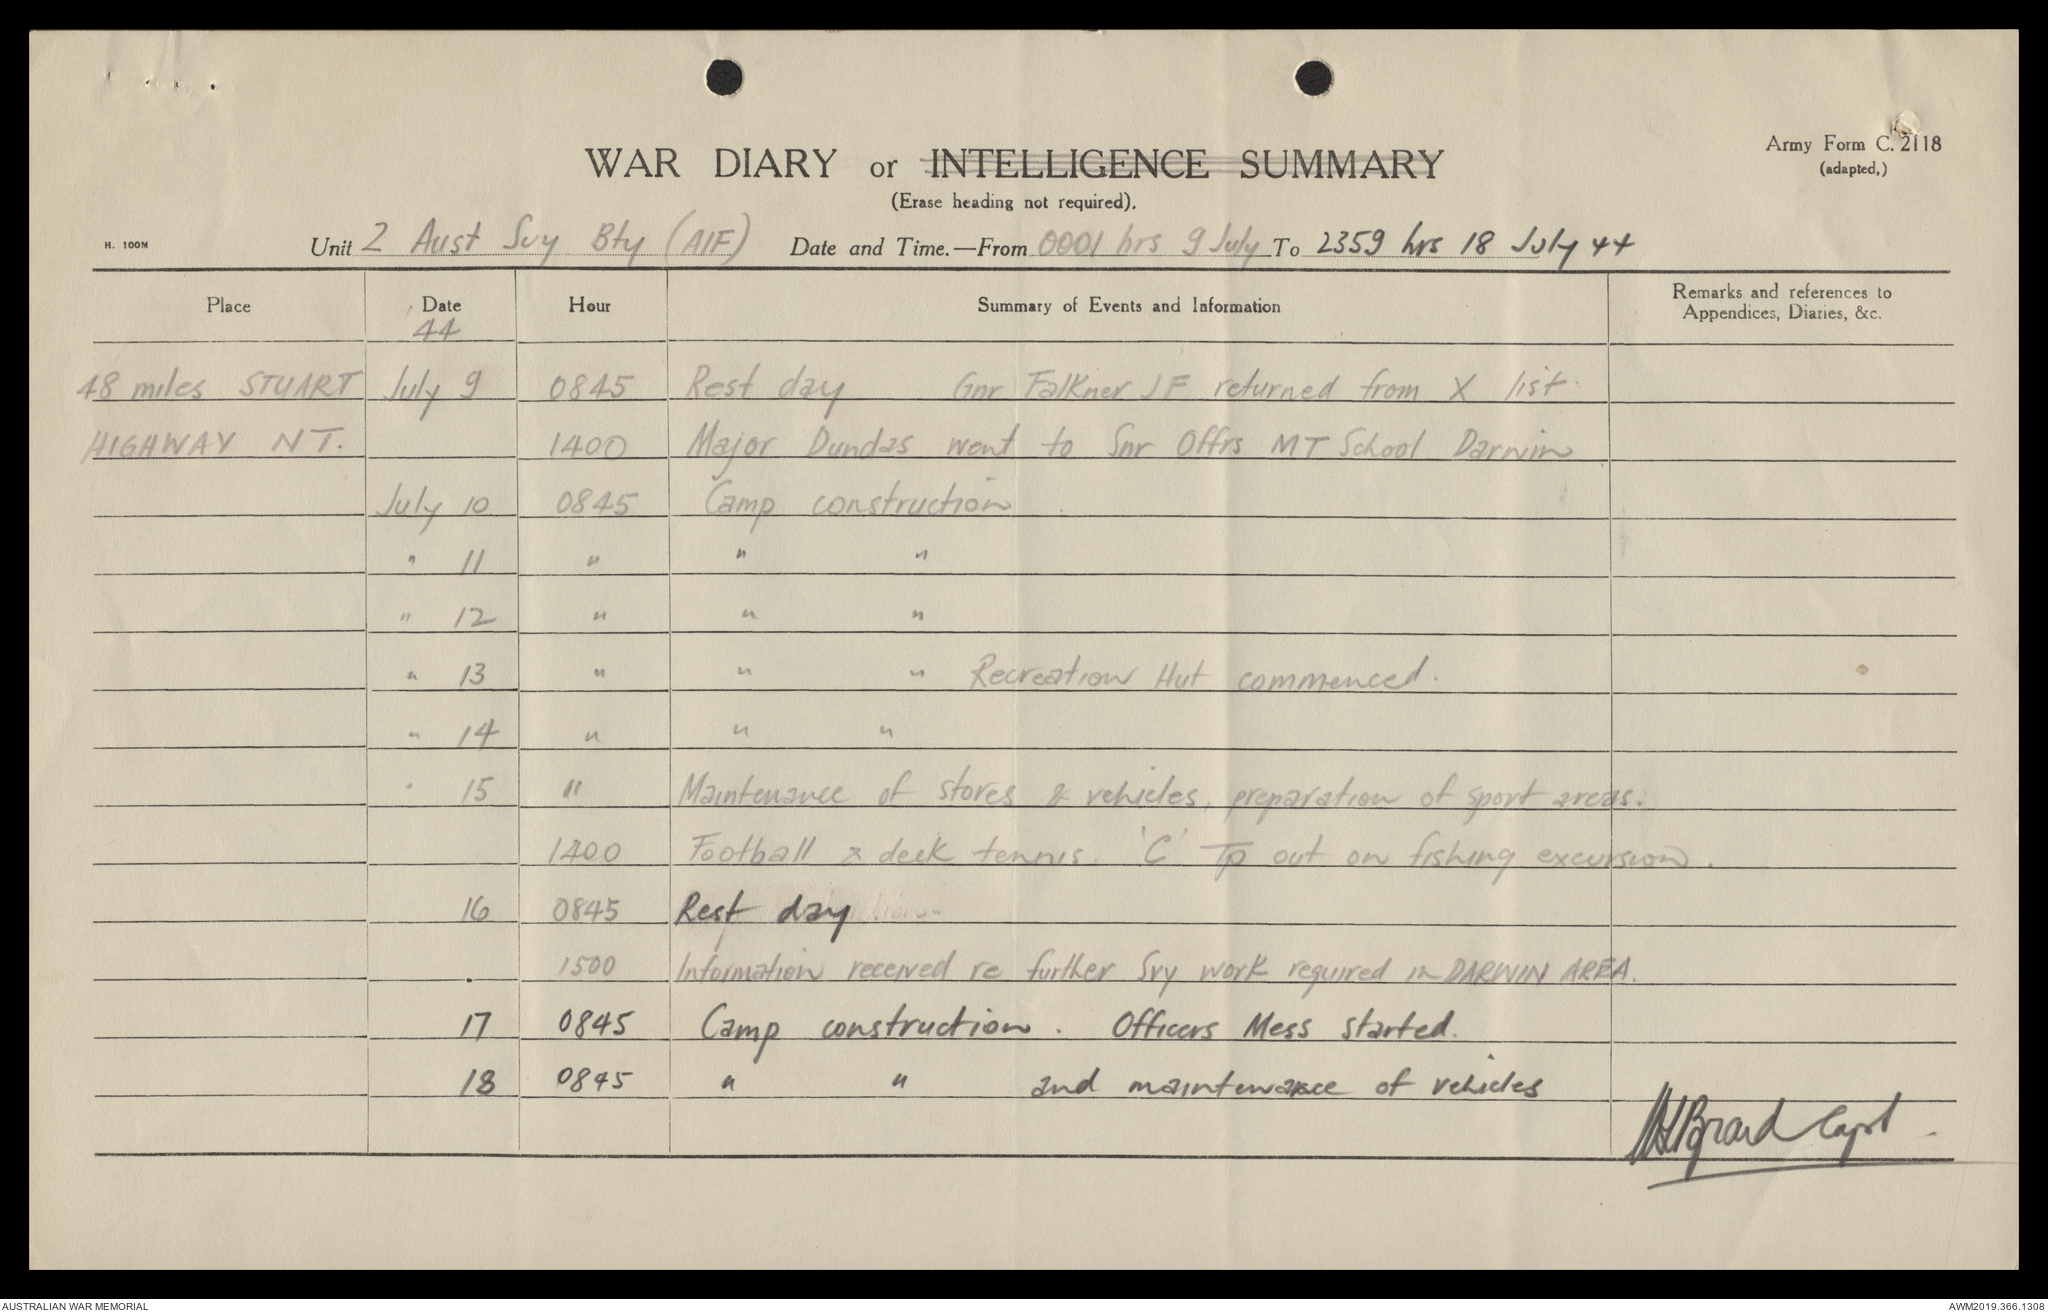 Army Form C. 2118
(adapted,)
WAR DIARY or INTELLIGENCE SUMMARY
(Erase heading not required).
H. 100M
Unit 2 Aust Svy Bty (AIF) Date and Time.—From 0001 hrs 9 July To 2359 hrs 18 July 44
Place Date Hour Summary of Events and Information Remarks and references to
Appendices, Diaries, &c.
44
48 miles STUART July 9 0845 Rest day Gnr Falkner JF returned from X list
HIGHWAY NT. 1400 Major Dundas went to Snr Offrs MT School Darwin
July 10 0845 Camp construction
" 11 " " "
" 12 " " "
" 13 " " " Recreation Hut commenced.
" 14 " " "
" 15 " Maintenance of stores & vehicles, preparation of sport areas.
1400 Football & deck tennis. 'C' Tp out on fishing excursion.
16 0845 Rest day
1500 Information received re further Svy work required in DARWIN AREA.
17 0845 Camp construction. Officers Mess started.
18 0845 " " and maintenance of vehicles
Capt
AUSTRALIAN WAR MEMORIAL
AWM2019.366.1308